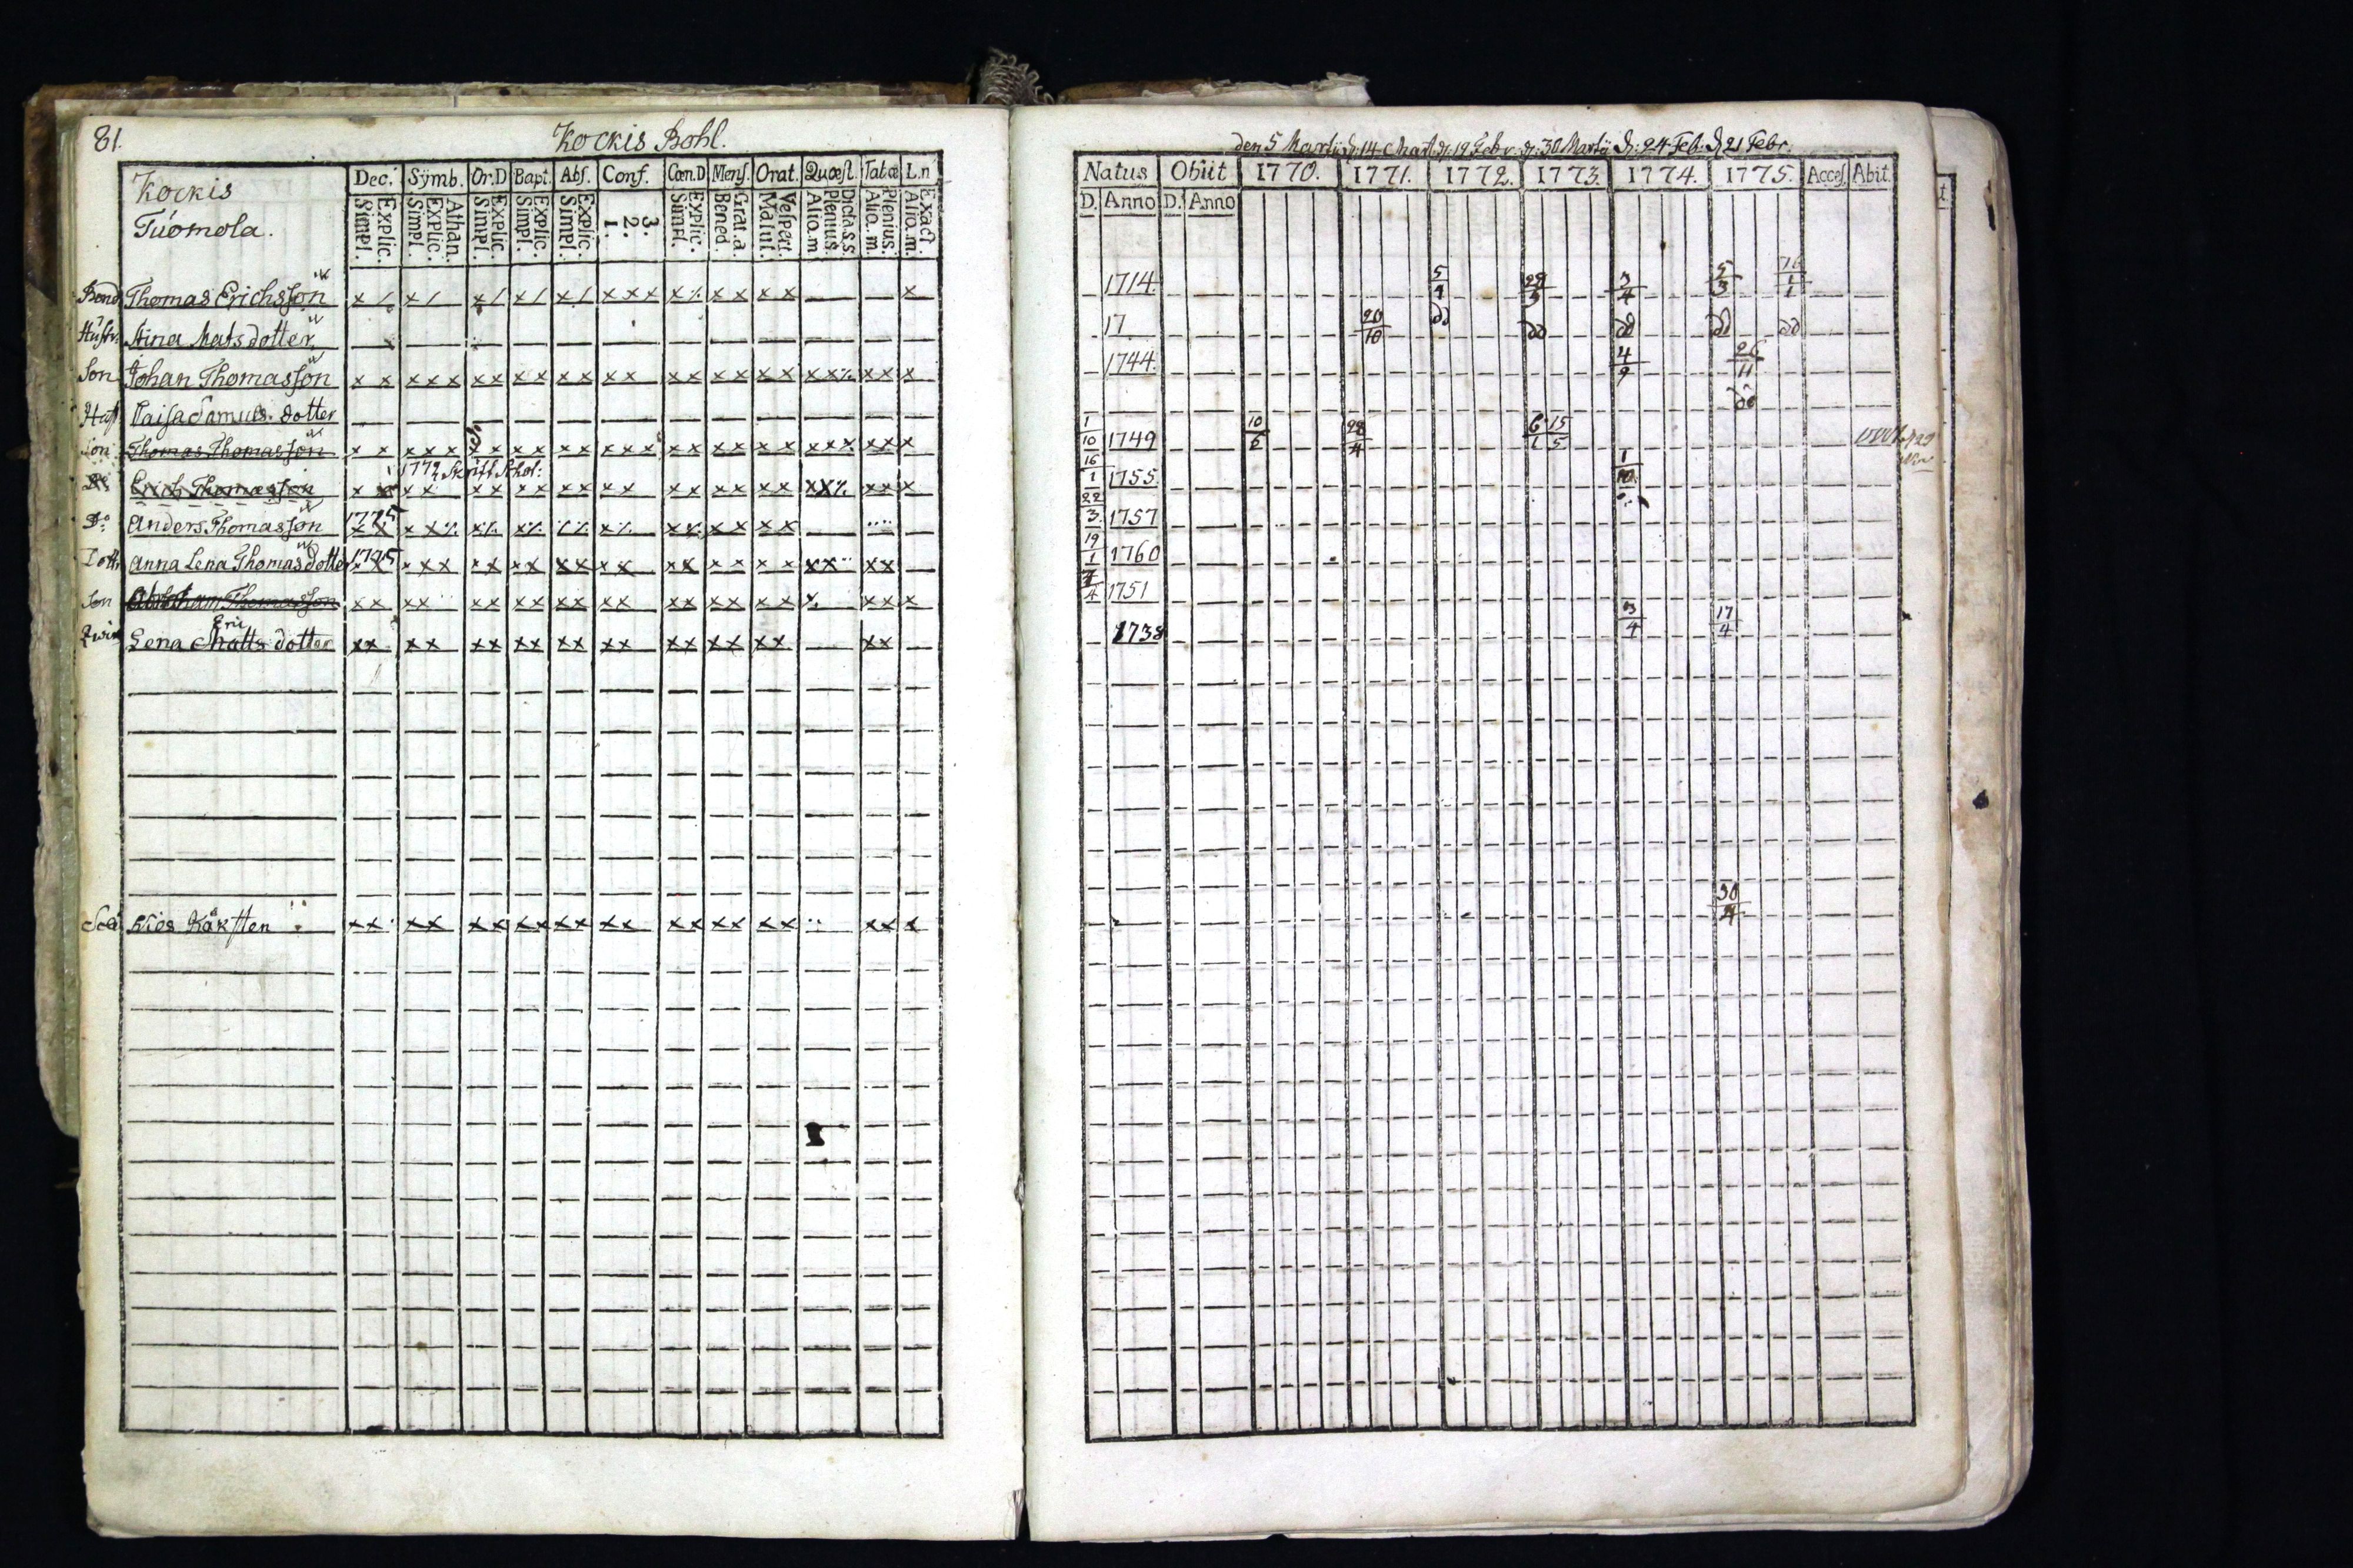 81.
Kockis Bohl.
Kockis
Tuomola.
Dec. Sÿmb. Or.D Bapt. Abs. Conf. Cœn.D Mens. Orat. Quœst. Tabœ L.n
Simpl. Explic. Simpl. Explic. Athan. Simpl. Explic. Simpl. Explic. Simpl. Explic. 1. 2. 3. Simpl. Explic. Bened. Grat.a Matut. Vespert. Alio.m Plenius. Dicta S.S. Alio.m. Plenius. Alio.m. Exact.
Bond Thomas Erichsson x / x / x / x / x / x x x x ⁒ x x x x x
Hustr. Stina Matsdotter
Son Johan Thomasson x x x x x x x x x x x x x x x x x x x x x ⁒ x x x x
Hust Samuels dotter
Son Thomas Thomasson x x x x x x x x x x x x x x x x x x x x x x x x x x x x
1772
Do Erich Thomasson x x x x x x x x x x x x x x x x x x x x ⁒ x x x x
Do Anders Thomasson 1775
Dottr Anna Lena Thomasdotter 1775
Son Abraham Thomasson x x x x x x x x x x x x x x x x x x x x x x x
Lena Matts dotter x x x x x x x x x x x x x x x x x x x x
Eric
x x x x x x x x x x x x x x x x x x x x x
den 5 Martii d. 14 Mart. d. 19 Febr. d. 30 Martii d. 24 Feb. d 21 Febr.
Natus Obiit 1770. 1771. 1772. 1773. 1774. 1775. Acces. Abit.
D. Anno D. Anno
1714 3/4 5/3
17 20/10 do do do do do
1744. 4/9 26/11
do
1/10 1749 10/ 28/4 6/1 15/5
16/1 1755 1/10
22/3 1757
19/1 1760
7/4 1751
1738 3/4 17/4
30/4